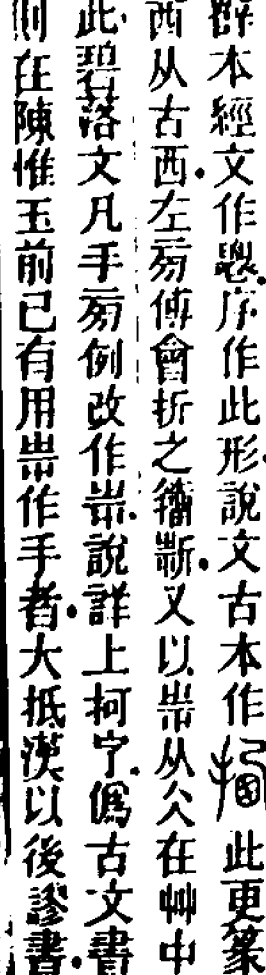 辭本經文作𢍱序作此形說文古本作 此更篆
西从古西左㫄傅會折之籒𣂚又以𡴆从仌在艸中
此碧落文凡手㫄例改作𡴆說詳上柯字僞古文書
則在陳惟玉前已有用𡴆作手者大抵漢以後謬書